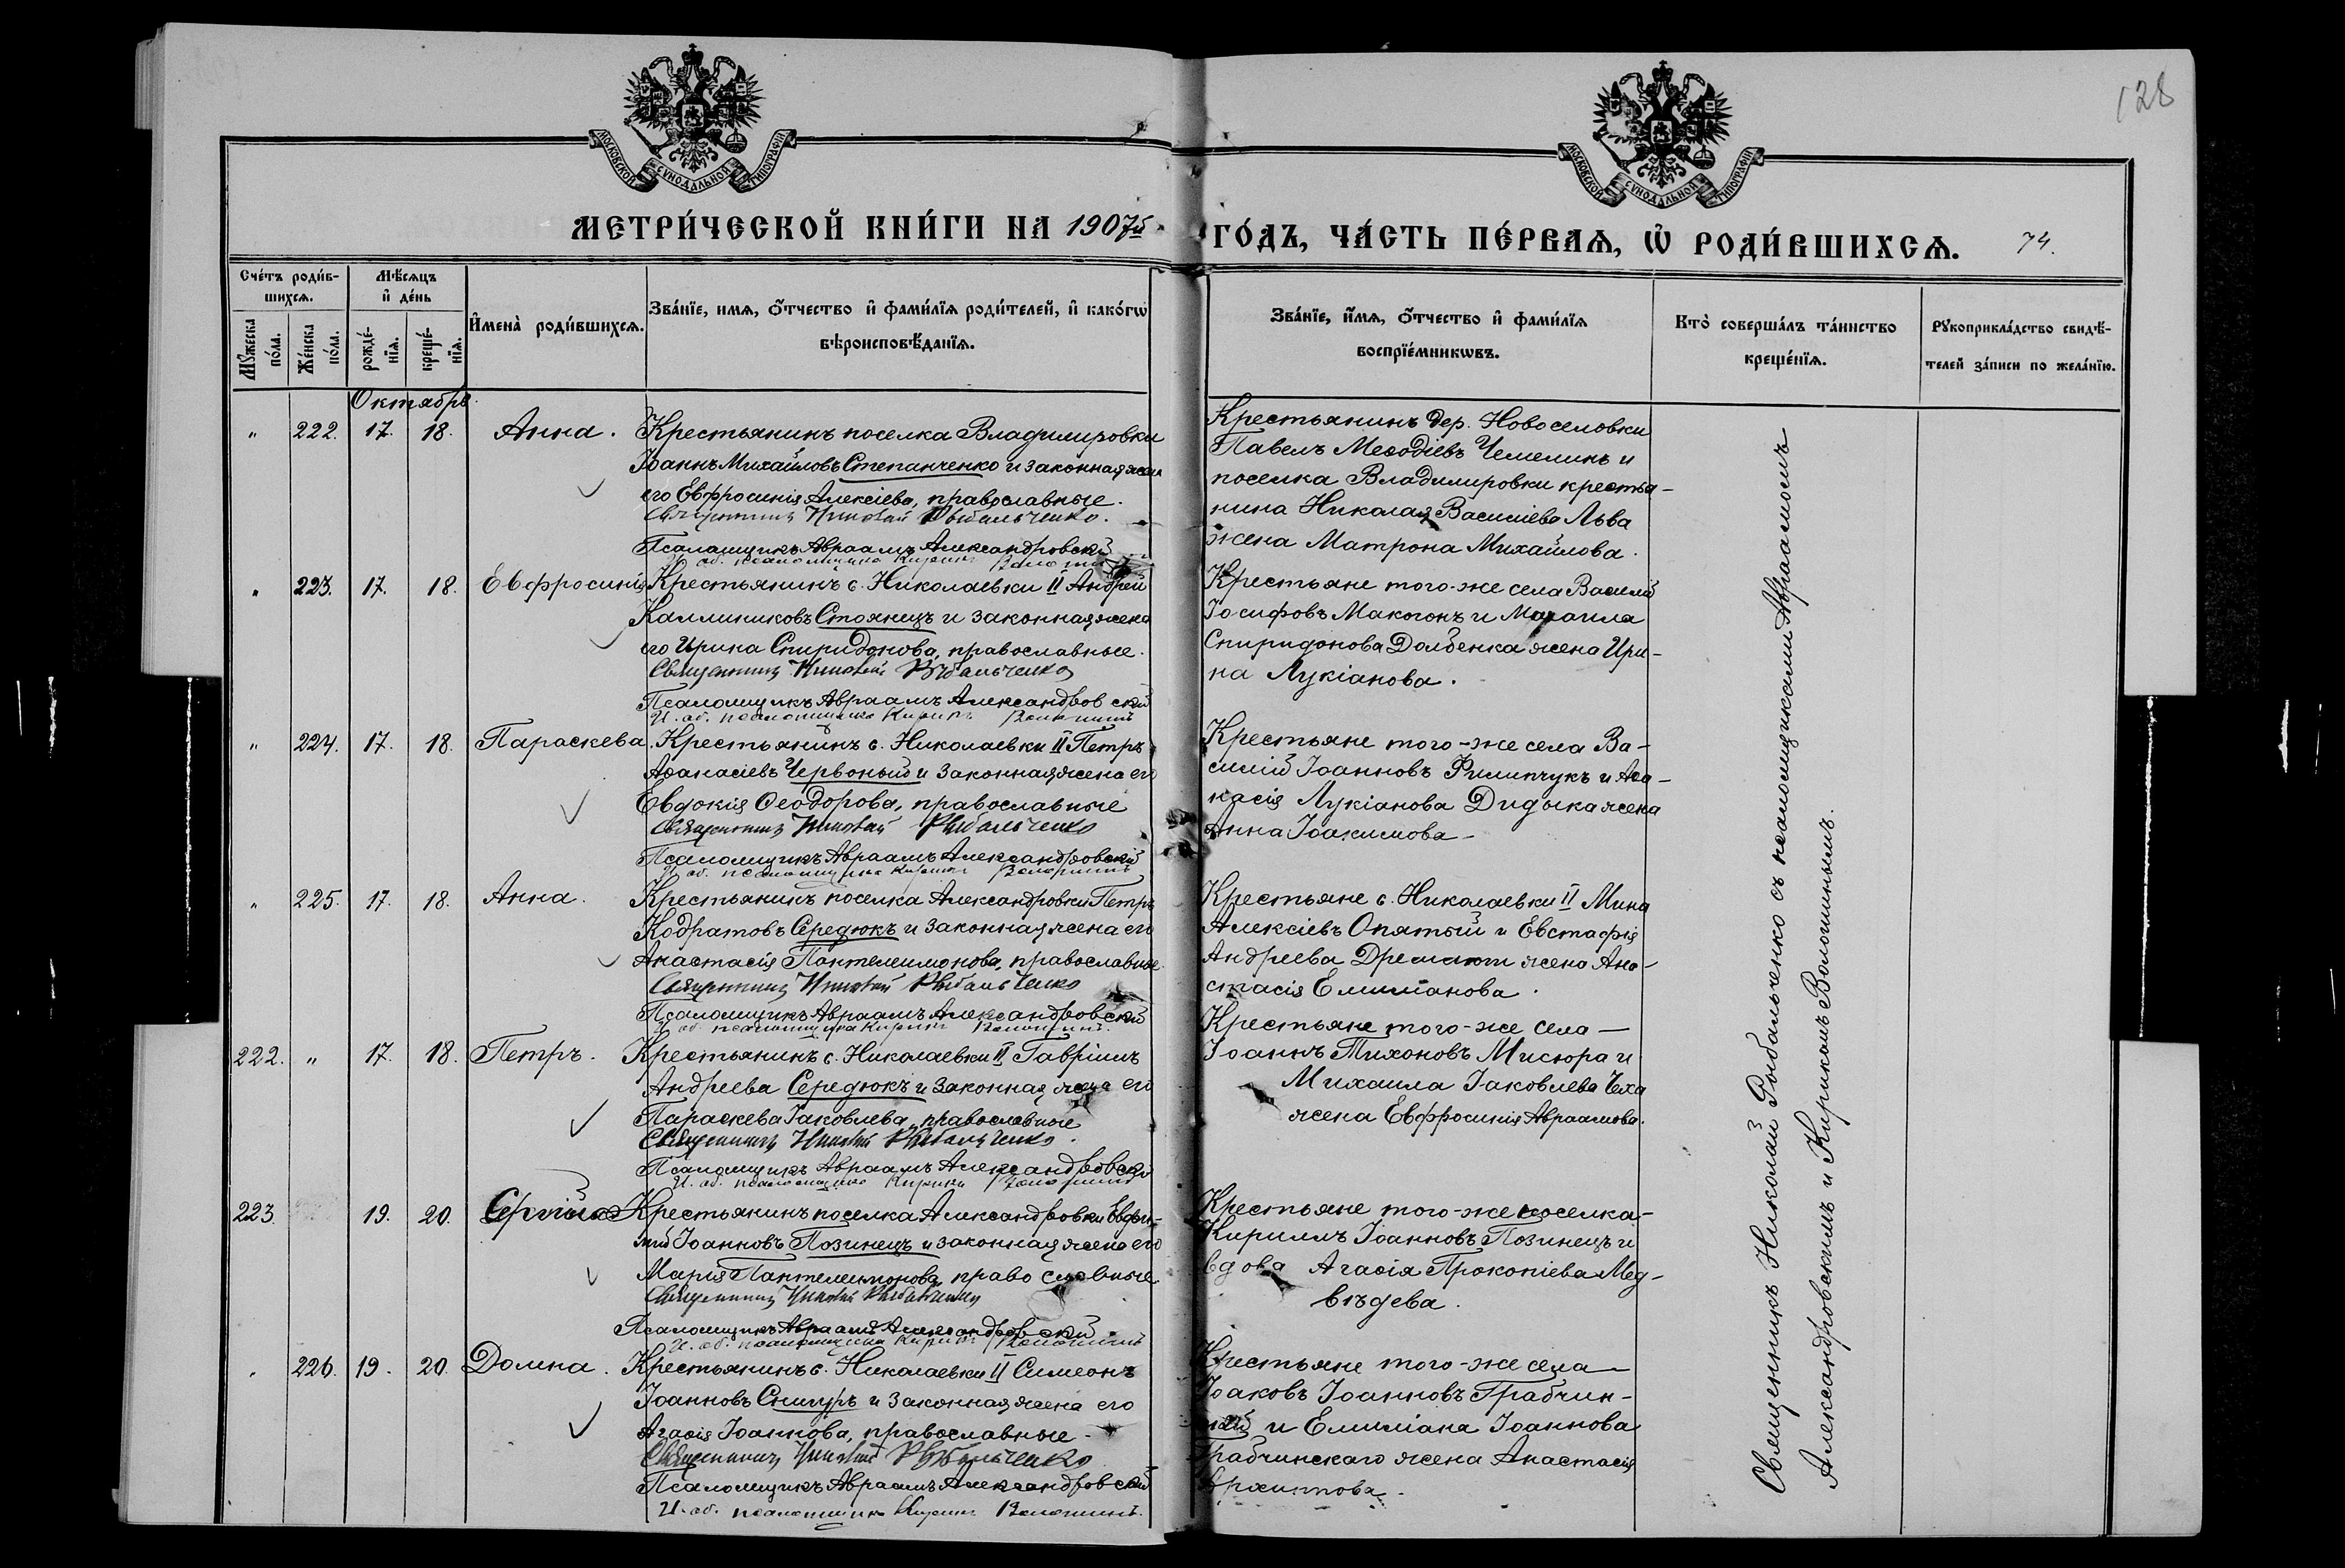 128
МОСКОВСКОЙ СѴНОДАЛЬНОЙ ТИПОГРАФІИ
МОСКОВСКОЙ СѴНОДАЛЬНОЙ ТИПОГРАФІИ
МЕТРИ́ЧЕСКОЙ КНИ́ГИ НА 1907й
ГО́ДЪ, ЧА́СТЬ ПЕ́РВАЯ, Ѡ РОДИ́ВШИХСЯ. 74.
Сче́тъ роди́в-
шихся.
Мѣ́сяцъ
и де́нь
Мꙋжеска
по́ла.
Же́нска
по́ла.
рожде́-
нїя.
креще́-
нїя.
Имена̀ роди́вшихся.
Зва́нїе, имя, ѻ҆́тчество и фами́лїя роди́телей, и како́гѡ
вѣроисповѣ́данїя.
Зва́нїе, и́мя, ѻ҆́тчество и фами́лїя
воспрїе́мникѡвъ.
Кто̀ соверша́лъ та́инство
креще́нїя.
Рꙋкоприкла́дство свидѣ́-
телей за́писи по жела́нїю.
Октябрь.
" 222. 17. 18. Анна.
Крестьянинъ поселка Владимировки
Іоаннъ Михайловъ Степанченко и законная жена
его Евфросинія Алексіева, православные.
Священникъ Николай Рыбальченко.
Псаломщикъ Авраамъ Александровскій
И. об. псаломщика Кирикъ Волошинъ
Крестьянинъ дер. Новоселовки
Павелъ Меѳодіевъ Чемелинъ и
поселка Владимировки крестья-
нина Николая Василіева Льва
жена Матрона Михайлова.
" 223. 17. 18. Евфросинія
Крестьянинъ с. Николаевки II Андрей
Каллиниковъ Стоянецъ и законная жена
его Ирина Спиридонова, православные.
Священникъ Николай Рыбальченко
Псаломщикъ Авраамъ Александровскій
И. об. псаломщика Кирикъ Волошинъ
Крестьяне того-же села Василій
Іосифовъ Макогонъ и Михаила
Спиридонова Долбенка жена Ири-
на Лукіанова.
" 224. 17. 18. Параскева.
Крестьянинъ с. Николаевки II Петръ
Аѳанасіевъ Червоный и законная жена его
Евдокія Ѳеодорова, православные
Священникъ Николай Рыбальченко
Псаломщикъ Авраамъ Александровскій
И. об. псаломщика Кирикъ Волошинъ
Крестьяне того-же села Ва-
силій Іоанновъ Филипчукъ и Аѳа-
насія Лукіанова Дидыка жена
Анна Іоакимова-
" 225. 17. 18. Анна.
Крестьянинъ поселка Александровки Петръ
Кодратовъ Середюкъ и законная жена его
Анастасія Пантелеимонова, православные
Священникъ Николай Рыбальченко
Псаломщикъ Авраамъ Александровскій
И об. псаломщика Кирикъ Волошинъ.
Крестьяне с. Николаевки II Мина
Алексіевъ Опятый и Евстафія
Андреева жена Ана-
стасія Емиліанова.
222. " 17. 18. Петръ.
Крестьянинъ с. Николаевки II Гавріилъ
Андреева Середюкъ и законная жена его
Параскева Іаковлева, православные
Священникъ Николай Рыбальченко.
Псаломщикъ Авраамъ Александровскій
И. об. псаломщика Кирикъ Волошинъ
Крестьяне того-же села-
Іоаннъ Тихоновъ Мисюра и
Михаила Іаковлева Чеха
жена Евфросинія Авраамова.
223. 19. 20. Сергій
Крестьянинъ поселка Александровки Евфи-
мій Іоанновъ Позинецъ и законная жена его
Марія Пантелеимонова, православные
Священникъ Николай Рыбальченко
Псаломщикъ Авраамъ Александровскій
И. об. псаломщика Кирикъ Волошинъ
Крестьяне того-же поселка-
Кириллъ Іоанновъ Позинецъ и
вдова Агаѳія Прокопіева Мед-
вѣдева.
" 226. 19. 20. Домна.
Крестьянинъ с. Николаевки II Симеонъ
Іоанновъ Снигуръ и законная жена его
Агаѳія Іоаннова, православные-
Священникъ Николай Рыбальченко
Псаломщикъ Авраамъ Александровскій
И. об. псаломщика Кирикъ Волошинъ.
Крестьяне того-же села-
Іоаковъ Іоанновъ Грабчин-
скій и Емиліана Іоаннова
Грабчинскаго жена Анастасія
Архиппова.
Священникъ Николай Рыбальченко съ псаломщиками Авраамомъ
Александровскимъ и Кирикомъ Волошинымъ.